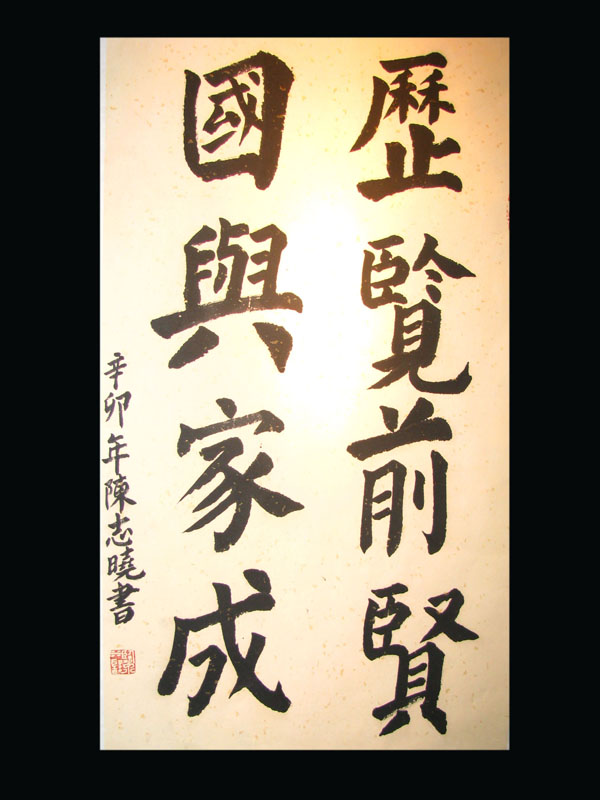 歷覽前賢
國與家成
辛卯年陳志曉書